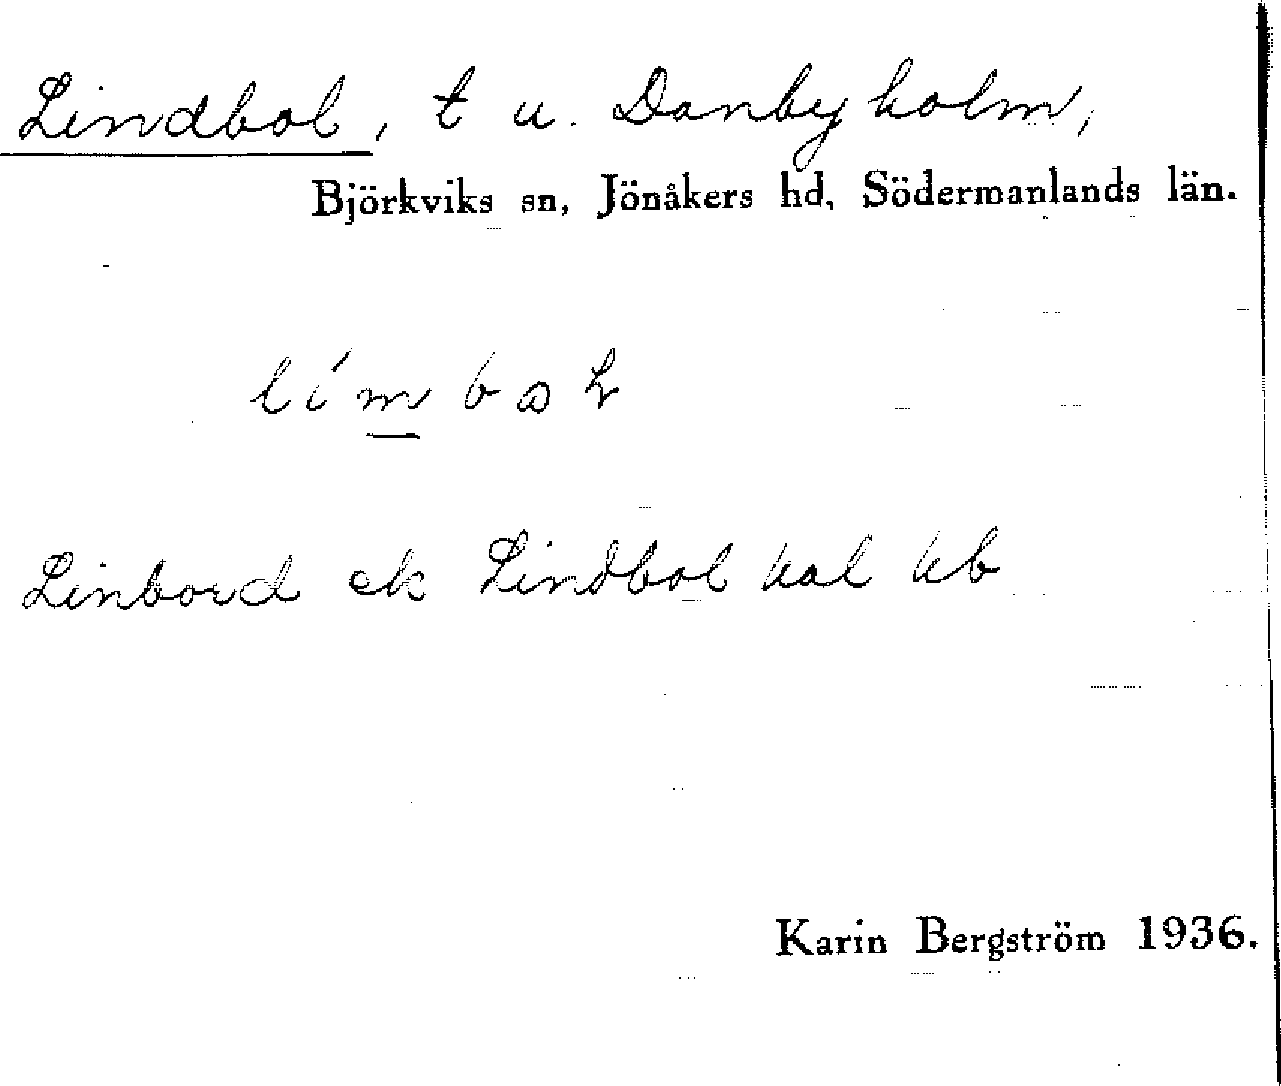 Lindbol, t u. Danbyholm,
Björkviks sn, Jönåkers hd, Södermanlands län.
Linbord ek Lindbol kal kb
Karin Bergström 1936.